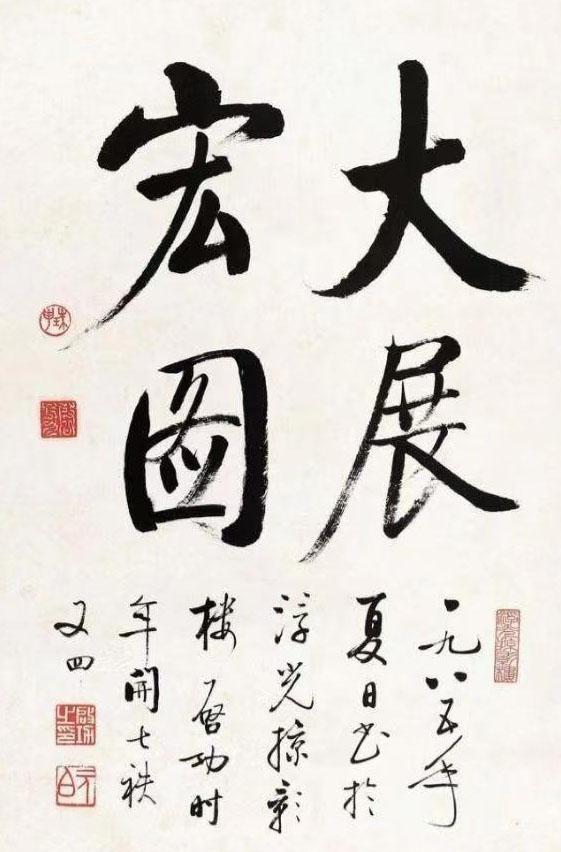 大展
宏图
一九八五年
夏日书於
浮光掠影
楼启功时
年开七秩
又四
启功
之印